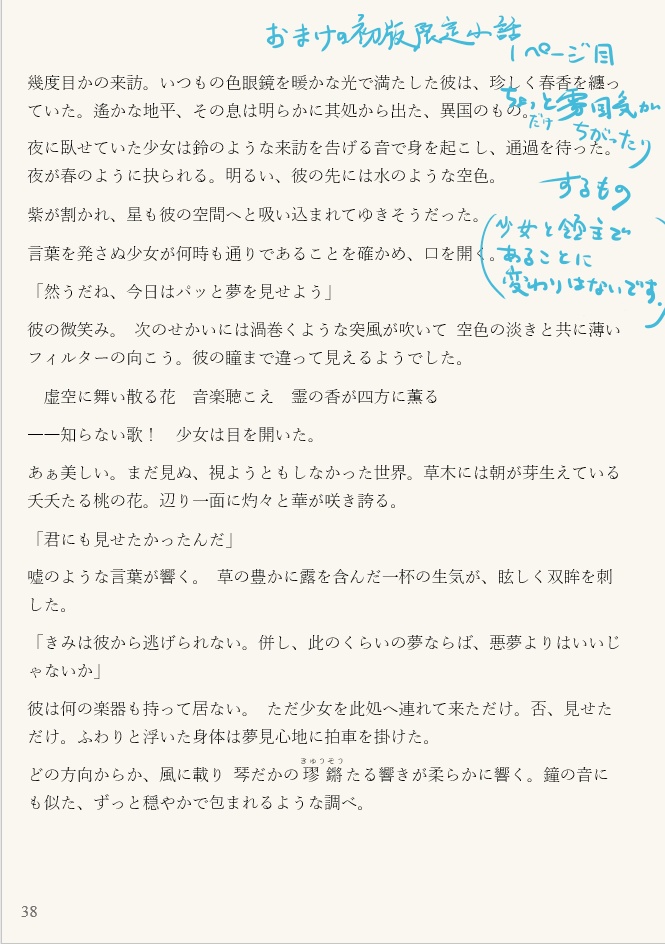 おまけの初版限定小話
1ページ目
ちょっと雰囲気が
だけ
ちがったり
するもの
(少女と領主で
あることに
変わりはないです。)
幾度目かの来訪。いつもの色眼鏡を暖かな光で満たした彼は、珍しく春香を纏っ
ていた。遙かな地平、その息は明らかに其処から出た、異国のもの。
夜に臥せていた少女は鈴のような来訪を告げる音で身を起こし、通過を待った。
夜が春のように抉られる。明るい、彼の先には水のような空色。
紫が割かれ、星も彼の空間へと吸い込まれてゆきそうだった。
言葉を発さぬ少女が何時も通りであることを確かめ、口を開く。
「然うだね、今日はパッと夢を見せよう」
彼の微笑み。 次のせかいには渦巻くような突風が吹いて 空色の淡きと共に薄い
フィルターの向こう。彼の瞳まで違って見えるようでした。
　虚空に舞い散る花　音楽聴こえ　霊の香が四方に薫る
――知らない歌！　少女は目を開いた。
あぁ美しい。まだ見ぬ、視ようともしなかった世界。草木には朝が芽生えている
夭夭たる桃の花。辺り一面に灼々と華が咲き誇る。
「君にも見せたかったんだ」
嘘のような言葉が響く。 草の豊かに露を含んだ一杯の生気が、眩しく双眸を刺
した。
「きみは彼から逃げられない。併し、此のくらいの夢ならば、悪夢よりはいいじ
ゃないか」
彼は何の楽器も持って居ない。 ただ少女を此処へ連れて来ただけ。否、見せた
だけ。ふわりと浮いた身体は夢見心地に拍車を掛けた。
きゅうそう
どの方向からか、風に載り 琴だかの璆鏘たる響きが柔らかに響く。鐘の音に
も似た、ずっと穏やかで包まれるような調べ。
38